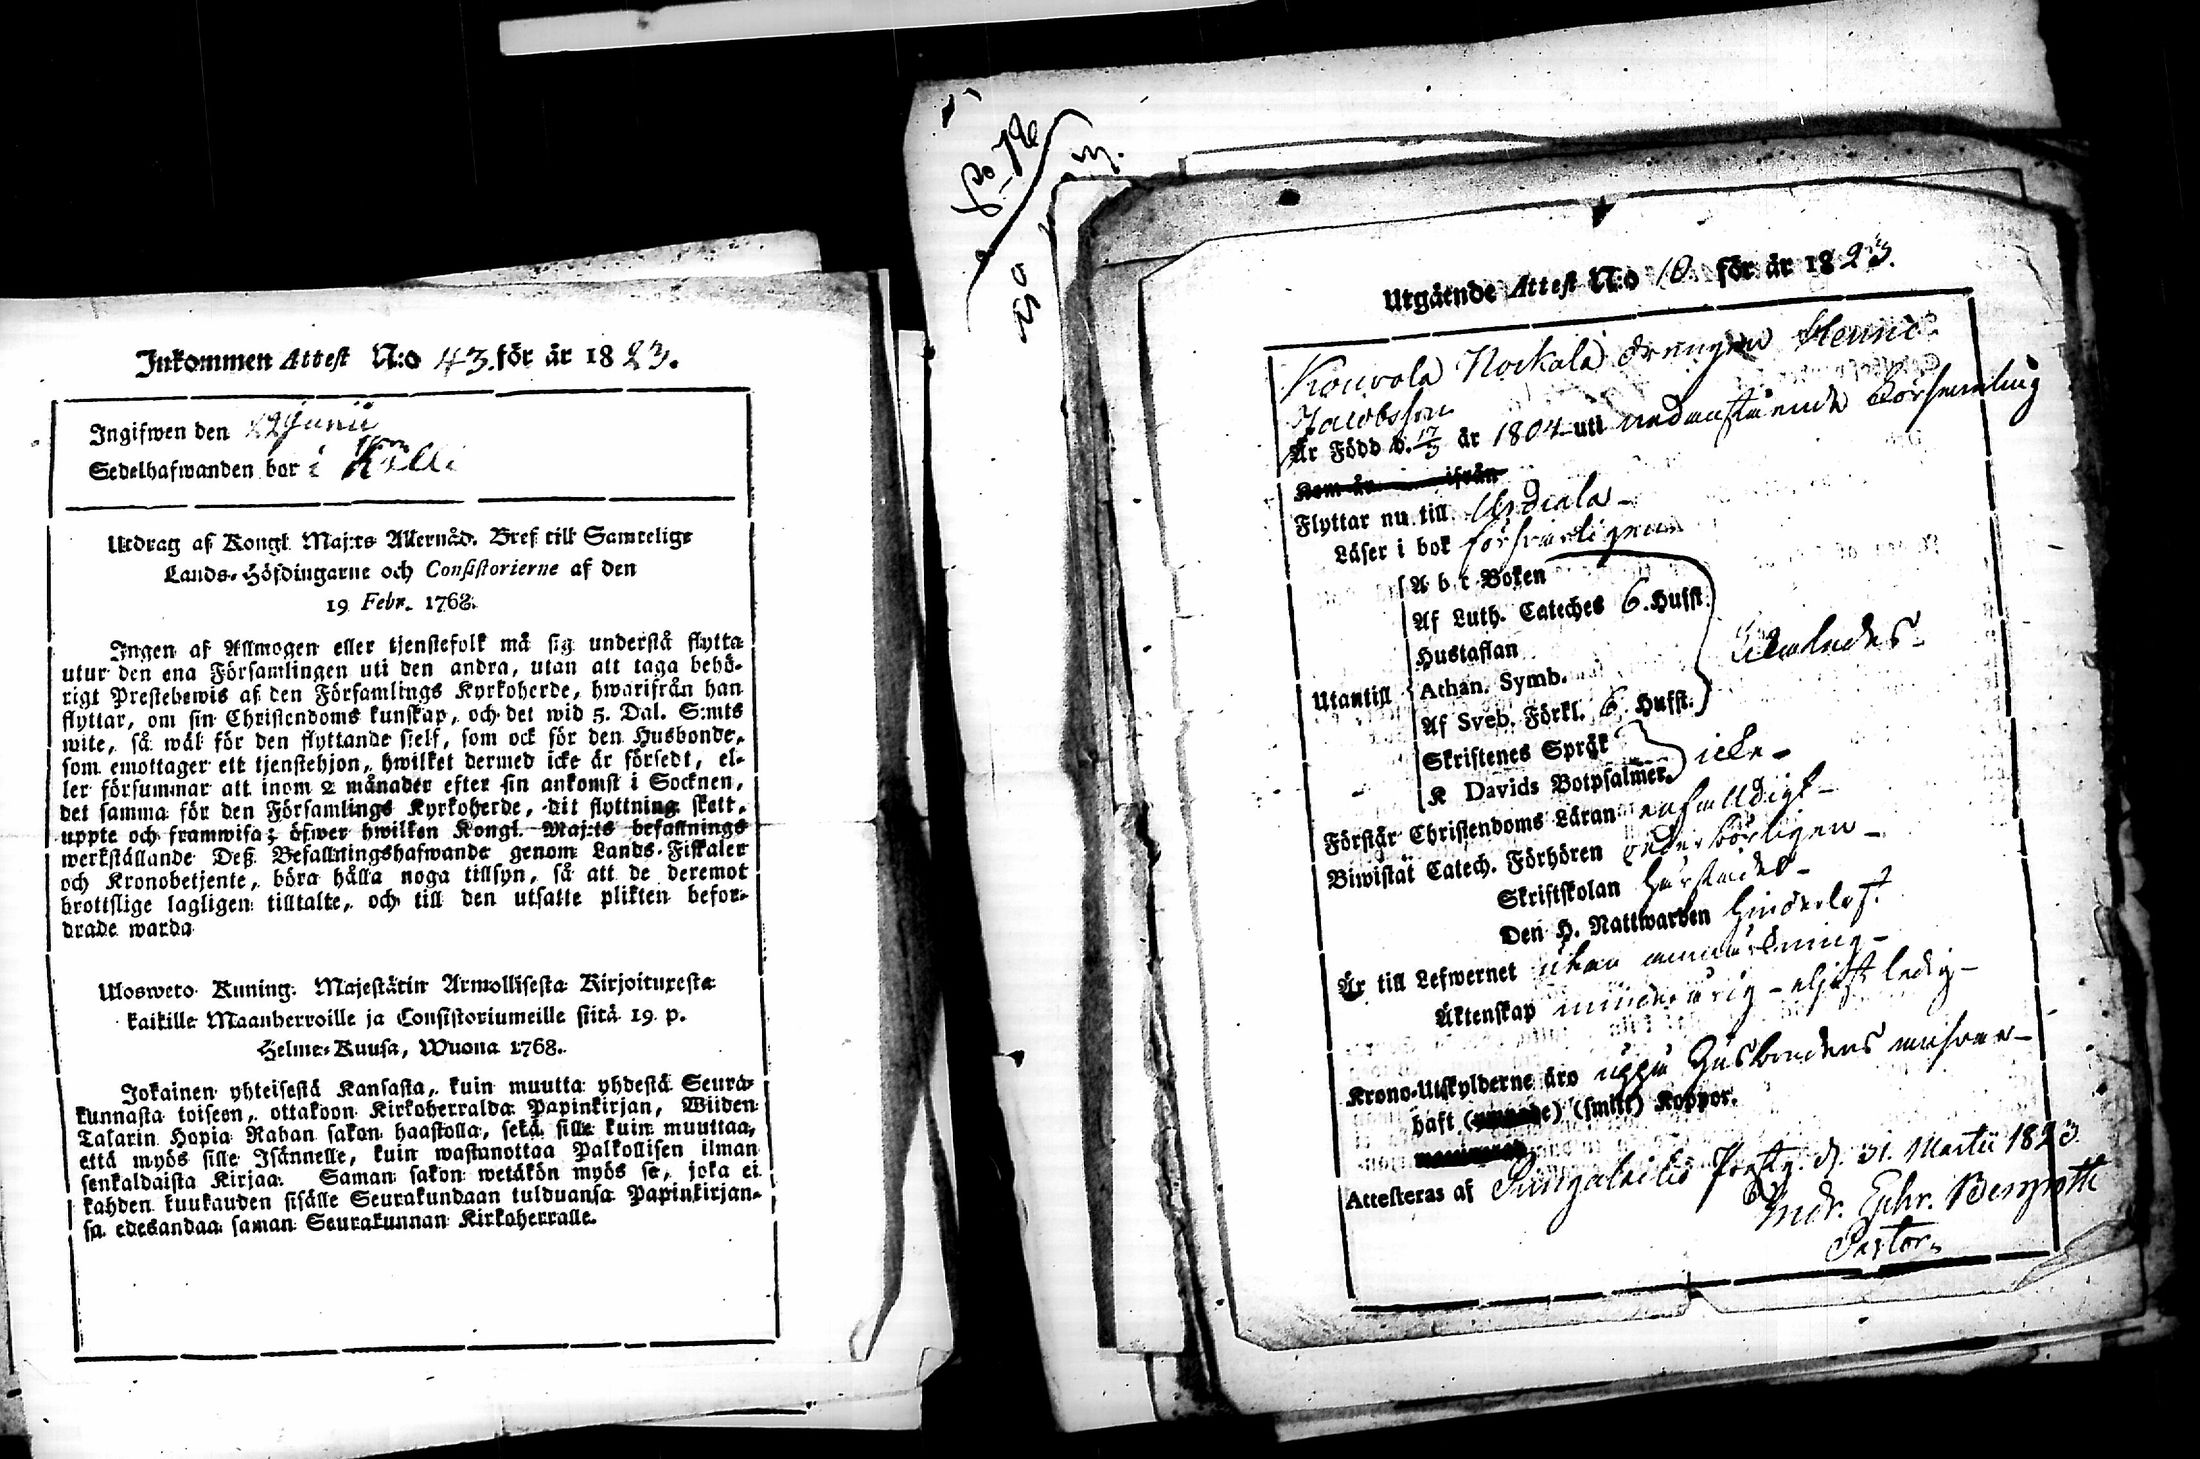 Inkommen Attest N:o 43. för år 1823.
Ingifwen den 22 Junii
Sedelhafwanden bor i Kölli
Utdrag af Kongl. Maj:ts Allernåd. Bref till Samtelige
Lands-Höfdingarne och Consistorierne af den
19 Febr. 1768.
Ingen af Allmogen eller tjenstefolk må sig understå flytta
utur den ena Församlingen uti den andra, utan att taga behö-
rigt Prestebewis af den Församlings Kyrkoherde, hwarifrån han
flyttar, om sin Christendoms kunskap, och det wid 5. Dal. S:mts
wite, så wäl för den flyttande sjelf, som ock för den Husbonde,
som emottager ett tjenstehjon, hwilket dermed icke är försedt, el-
ler försummar att inom 2 månader efter sin ankomst i Socknen,
det samma för den Församlings Kyrkoherde, dit flyttning skett,
uppte och framwisa; öfwer hwilken Kongl. Maj:ts befallnings
werkställande Deß Befallningshafwande genom Lands-Fiskaler
och Kronobetjente, böra hålla noga tillsyn, så att de deremot
brottslige lagligen tilltalte, och till den utsatte plikten befor-
drade warda
Ulosweto Kuning. Majestätin Armollisesta Kirjoituxesta
kaikille Maanherroille ja Consistoriumeille siitä 19 p.
Helme-Kuusa, Wuona 1768.
Jokainen yhteisestä Kansasta, kuin muutta yhdestä Seura-
kunnasta toiseen, ottakoon Kirkoherralda Papinkirjan, Wiiden
Talarin Hopia Rahan sakon haastolla, sekä sille kuin muuttaa,
että myös sille Isännelle, kuin wastanottaa Palkollisen ilman
senkaldaista Kirjaa. Saman sakon wetäkön myös se, joka ei
kahden kuukauden sisälle Seurakundaan tulduansa Papinkirjan-
sa edesandaa saman Seurakunnan Kirkoherralle.
Utgående Attest N:o 10. för år 1823.
Kouvola Nockala drengen Henric
Jacobsson
Är Född d. 17/3 år 1804 uti nedanstående Församling
Kom år ifrån
Flyttar nu till Urdiala
Läser i bok försvarligen
A b c Boken
Af Luth. Cateches 6. Hufst.
Hustaflan
Utantill Athan. Symb.
Af Sveb. Förkl. 6. Hufst.
Skriftenes Språk
K Davids Botpsalmer. icke
Förstår Christendoms Läran enfalldigt
Biwistat Catech. Förhören vederbörligen
Skriftskolan
Den H. Nattwarden Hinderlöst
Är till Lefwernet utan anmärkning
Äktenskap minderårig - eljest ledig
Krono-Utskylderne äro uppå Husbondens ansvar
haft (smitt) Koppor.
Attesteras af Pungalaitio Prestg. d. 31. Martii 1823
Andr. Ephr.
Pastor.